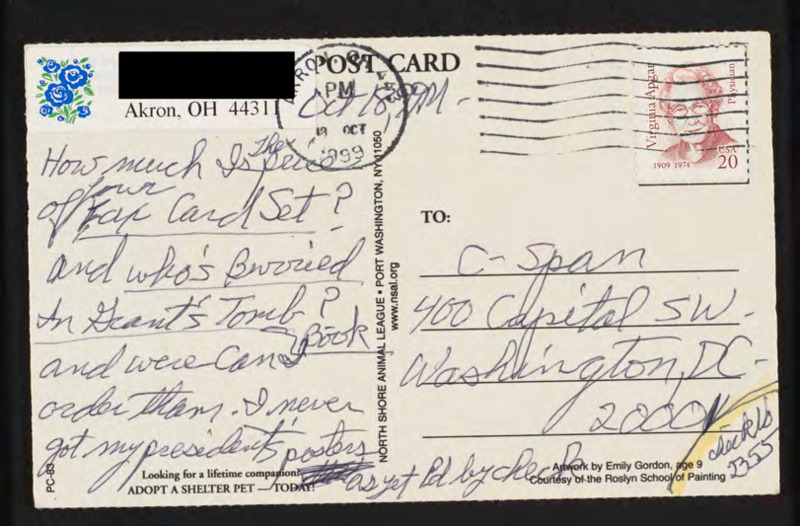 POST CARD
Akron, OH 4431
PM
OCT
1999
Oct 18, PM-
Virginia Apgar
Physician
1909 1974
USA
20
How much Is The price
of your Card Set?
and who's Burried
In Grant's Tomb?
Book
and were Can I
order tham. I never
got my president's posters
as yet Pd by check
NORTH SHORE ANIMAL LEAGUE • PORT WASHINGTON, NY 11050
www.nsal.org
TO:
C-Span
400 Capital SW.
Washington, DC-
20001
check Nb
2355
PC-83
Looking for a lifetime companion?
ADOPT A SHELTER PET — TODAY!
Artwork by Emily Gordon, age 9
Courtesy of the Roslyn School of Painting